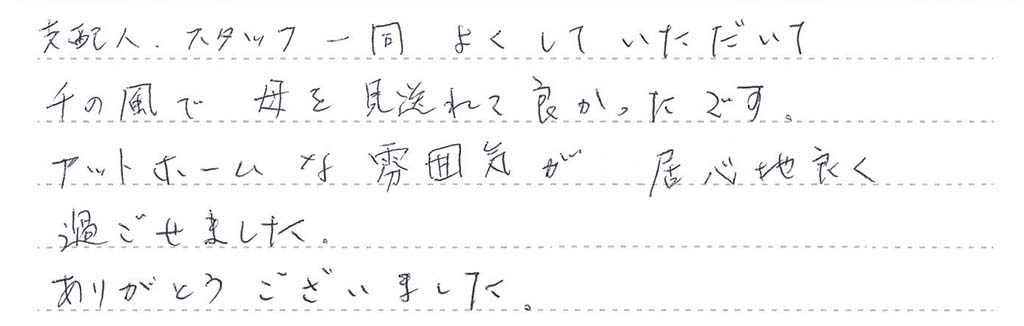 支配人、スタッフ一同 よくしていただいて
千の風で 母を見送れて良かったです。
アットホームな雰囲気が 居心地良く
過ごせました。
ありがとうございました。